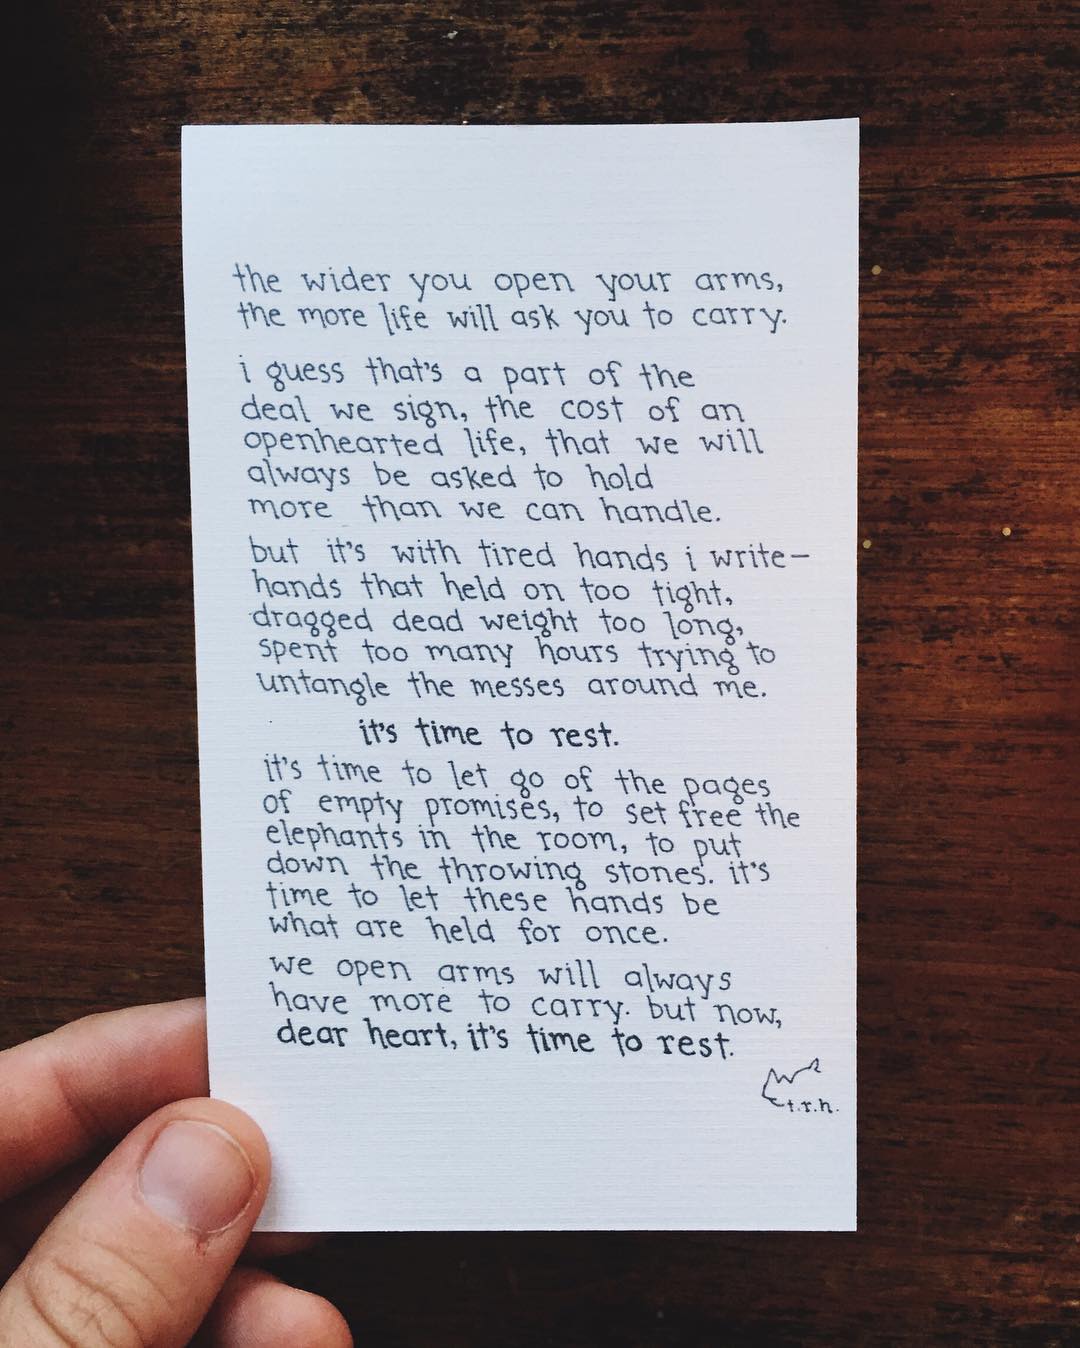 the wider you open your arms,
the more life will ask you to carry.
i guess that's a part of the
deal we sign, the cost of an
openhearted life, that we will
always be asked to hold
more than we can handle.
but it's with tired hands i write—
hands that held on too tight,
dragged dead weight too long,
spent too many hours trying to
untangle the messes around me.
it's time to rest.
it's time to let go of the pages
of empty promises, to set free the
elephants in the room, to put
down the throwing stones. it's
time to let these hands be
what are held for once.
we open arms will always
have more to carry. but now,
dear heart, it's time to rest.
t.r.h.